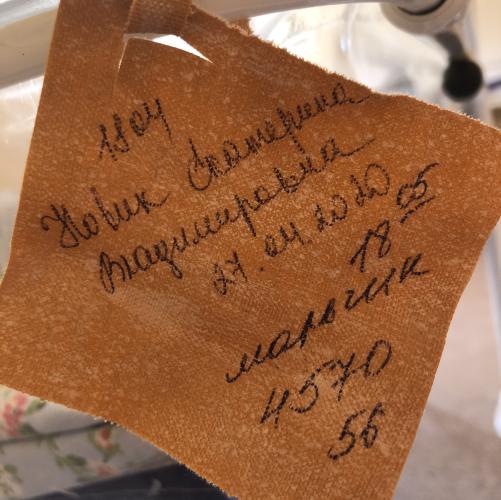 1104
Новик Екатерина
Владимировна
27.04.2020
18 05
мальчик
4570
56